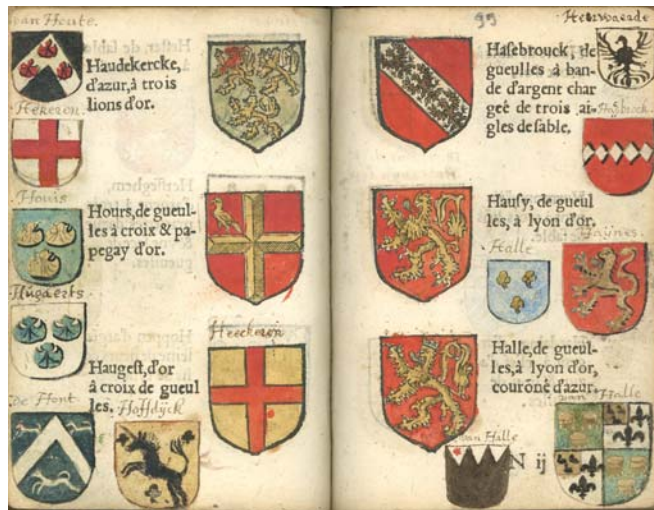 van Houte.
Haudekercke,
d'azur, à trois
lions d'or.
Hekeron.
Houis
Hours, de gueul-
les à croix & pa-
pegay d'or.
Hugaerts
Heeckeron
Haugest, d'or
à croix de gueul
les.
de Hont
Hoffdijck
99
Heerwaerde
Hasebrouck, de
gueulles à ban-
de d'argent char
geé de trois ai-
gles de sable.
Hasbrock
Hausy, de gueul
les, à lyon d'or.
Halle
Haÿnes.
Halle, de gueul-
les, à lyon d'or,
courōné d'azur.
van Halle
van Halle
N ij